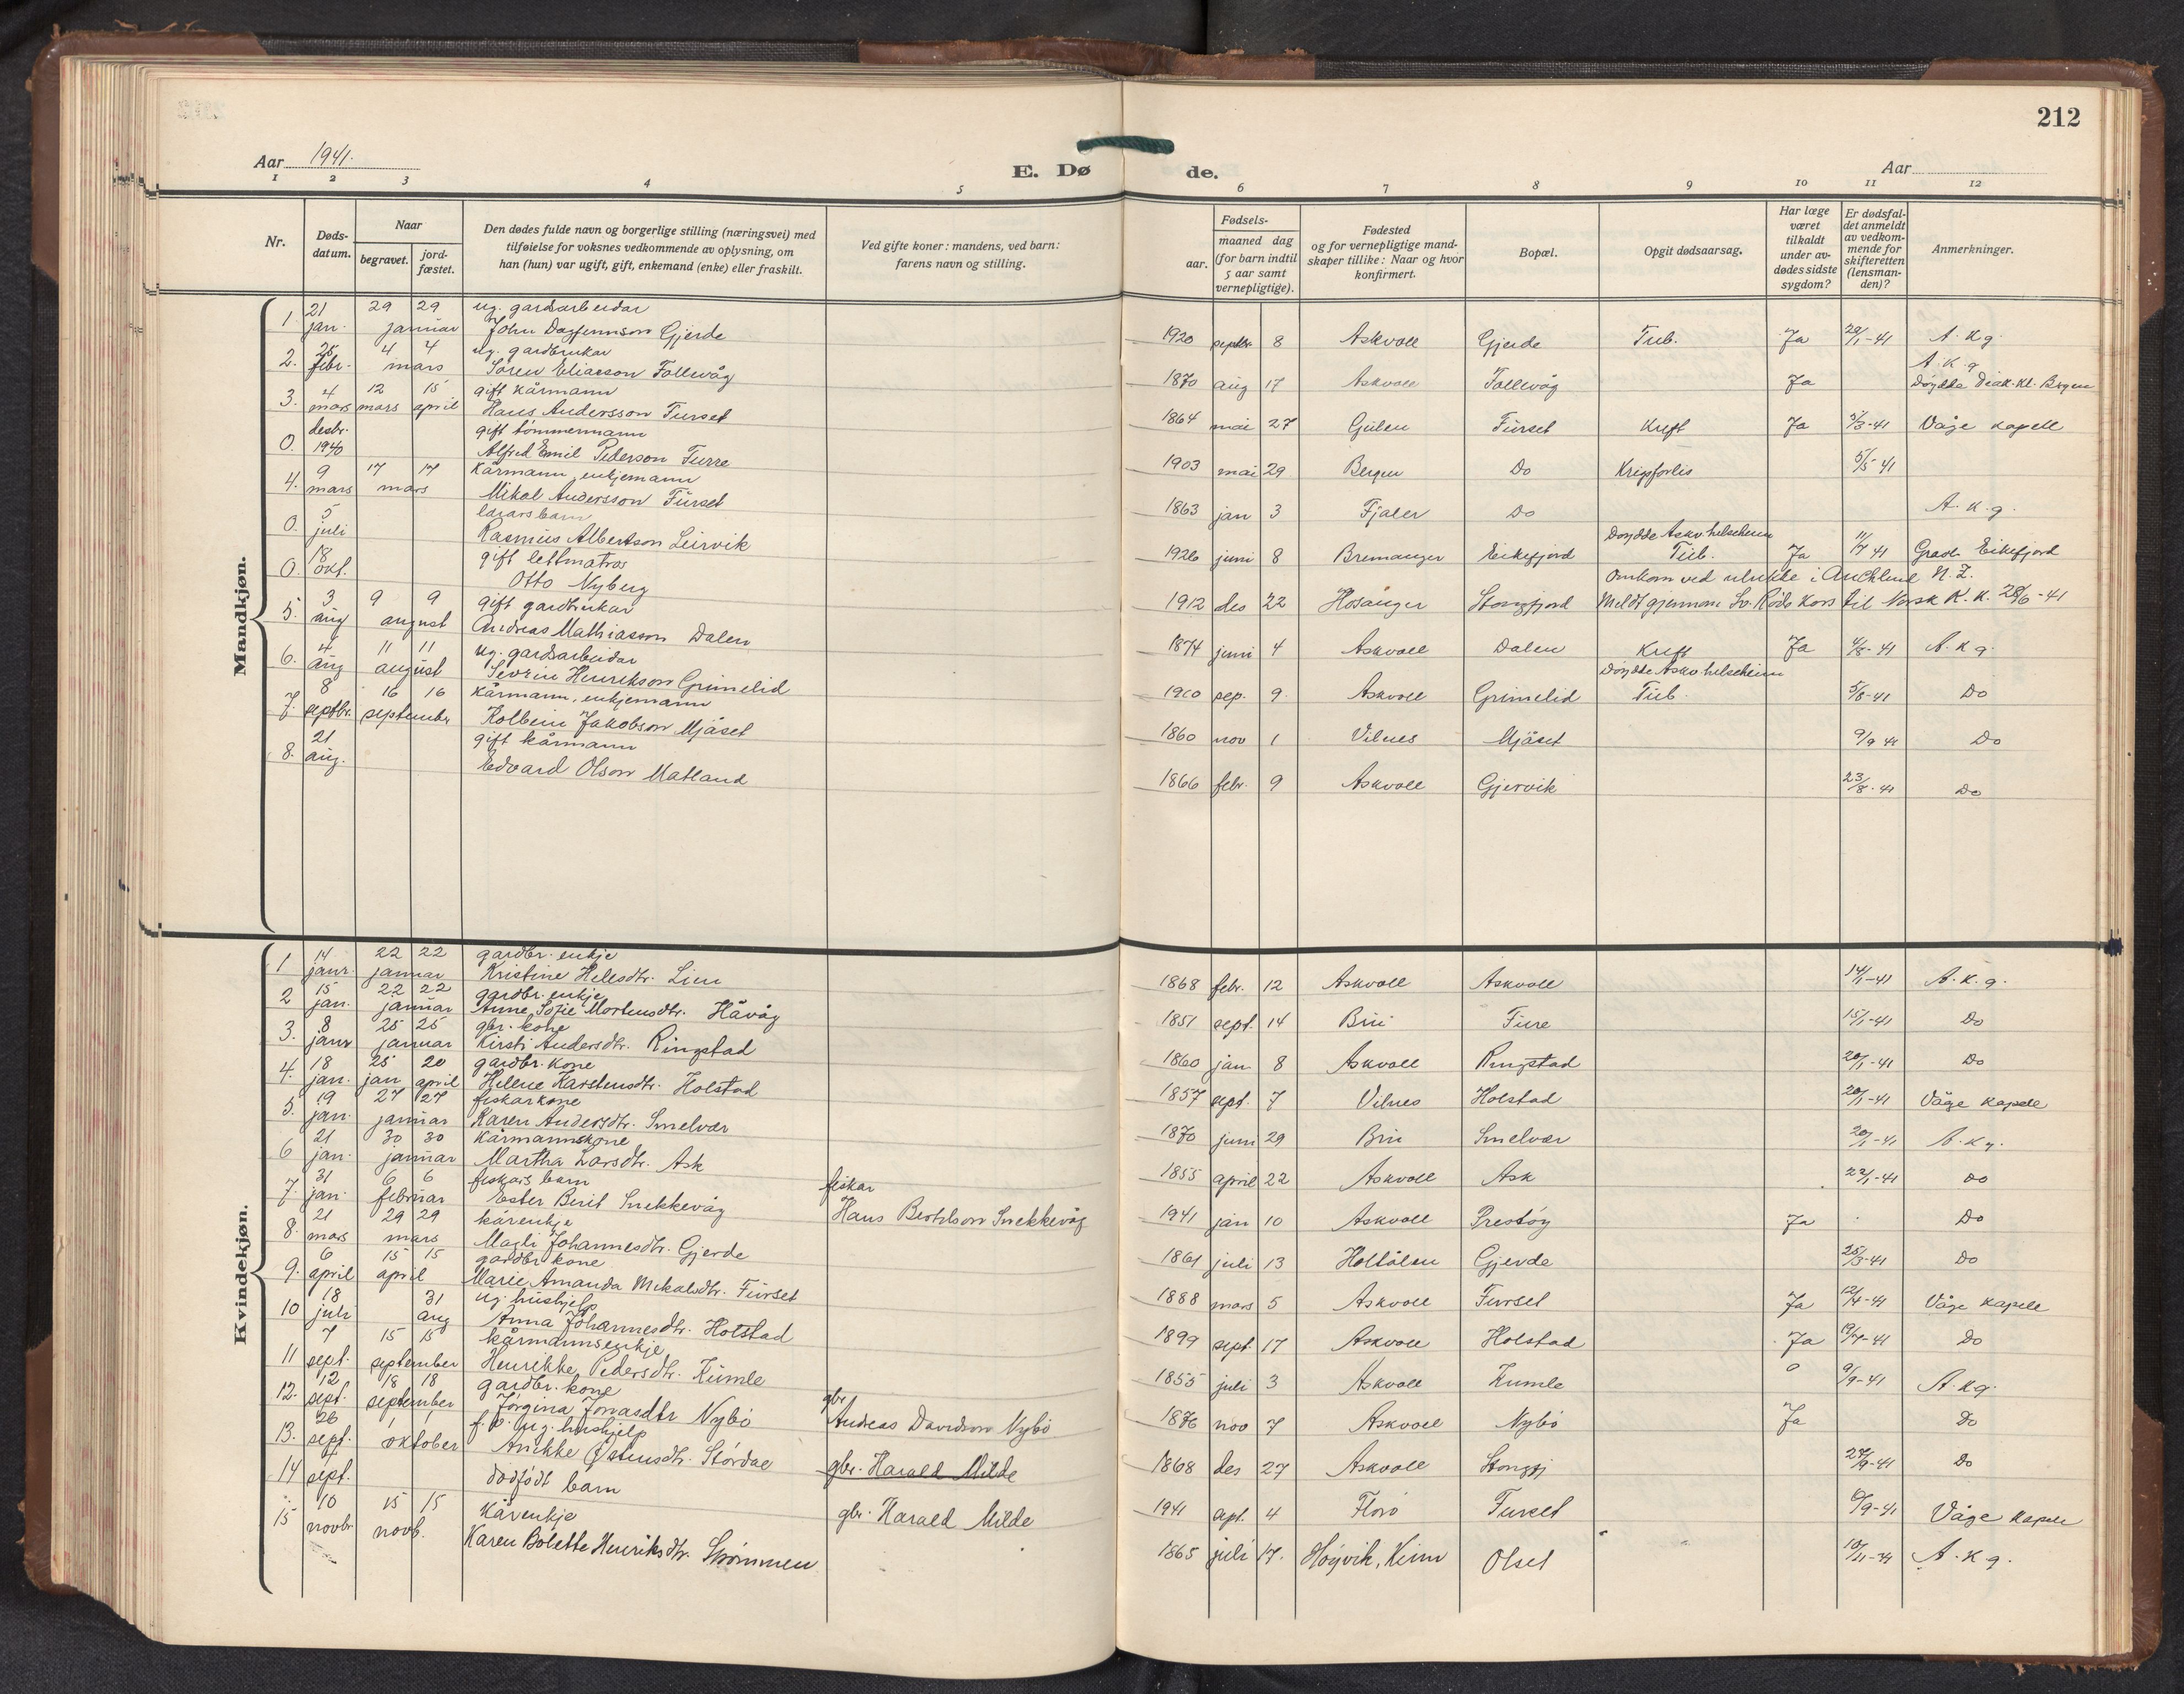 212
Aar 1941.
E. Dø
de.
Aar
1 2 3 4 5 6 7 8 9 10 11 12
Nr.
Døds-
datum.
Naar
begravet.
jord-
fæstet.
Den dødes fulde navn og borgerlige stilling (næringsvei) med
tilføielse for voksnes vedkommende av oplysning, om
han (hun) var ugift, gift, enkemand (enke) eller fraskilt.
Ved gifte koner: mandens, ved barn:
farens navn og stilling.
Fødsels-
aar.
maaned dag
(for barn indtil
5 aar samt
vernepligtige).
Fødested
og for vernepligtige mand-
skaper tillike: Naar og hvor
konfirmert.
Bopæl.
Opgit dødsaarsag.
Har læge
været
tilkaldt
under av-
dødes sidste
sygdom?
Er dødsfal-
det anmeldt
av vedkom-
mende for
skifteretten
(lensman-
den)?
Anmerkninger.
Mandkjøn.
21 29 29 ug. gardsarbeidar
1. jan. januar John Dagfinnson Gjerde 1920 septbr. 8 Askvoll Gjerde Tub. Ja 29/1-41 A.k.g.
25 4 4 ug. gardbrukar A.k.g
2. febr. mars Søren Eliasson Follevåg 1870 aug 17 Askvoll Follevåg Ja Døydde Diak.kl. Bergen
4 12 15 gift kårmann
3. mars mars april Hans Andersson Furset 1864 mai 27 Gulen Furset Kreft Ja 5/3-41 Våge kapell
desbr. gift tømmermann
0. 1940 Alfred Emil Pederson Furre 1903 mai 29 Bergen Do Krigsforlis 5/5 41
9 17 17 Kårmann, enkjemann
4. mars mars Mikal Andersson Furset 1863 jan 3 Fjaler Do A.k.g.
5 lærarsbarn Døydde Askv. helseheim
0. juli Rasmus Albertson Leirvik 1926 juni 8 Bremanger Eikefjord Tub. Ja 11/7 41 Gravl. Eikefjord
18 gift lettmatros Omkom ved ulukke i Auckland N.Z.
0. okt. Otto Nyberg 1912 des 22 Hosanger Stongfjord Meldt gjennom Sv. Røde Kors til Norsk R.K. 28/6-41
3 9 9 gift gardbrukar
5. aug august Andreas Mathiasson Dalen 1874 juni 4 Askvoll Dalen Kreft Ja 4/8-41 A.k.g.
4 11 11 ug. gardsarbeidar Døydde Askv. helseheim
6. aug august Severin Henrikson Grimelid 1910 sep. 9. Askvoll Grimelid Tub. 5/8-41 Do
8 16 16 Kårmann, enkjemann
7. septbr. september Kolbein Jakobson Mjåset 1860 nov 1 Vilnes Mjåset 9/9 41 Do
21 gift kårmann
8. aug. Edvard Olson Matland 1866 febr. 9 Askvoll Gjervik 23/8-41 Do
Kvindekjøn.
14 22 22 gardbr. enkje
1 janr. januar Kristine Helesdtr. Lien 1868 febr. 12 Askvoll Askvoll 14/1-41 A.k.g.
15 22 22 gardbr. enkje
2 jan. januar Anne Sofie Mortensdtr. Håvåg 1851 sept. 14 Bru Fure 15/1-41 Do
8 25 25 gbr. kone
3. janr januar Kirsti Andersdtr. Ringstad 1860 jan 8 Askvoll Ringstad 20/1-41 Do
18 25 20 gardbr. kone
4. jan. jan april Helene Karstensdtr. Holstad 1857 sept. 7 Vilnes Holstad 20/1-41 Våge kapell
19 27 27 fiskarkone
5. jan. januar Karen Andersdtr. Smelvær 1870 juni 29 Bru Smelvær 20/1-41 A.k.g.
21 30 30 kårmannskone
6 jan. januar Martha Larsdtr. Ask 1855 april 22 Askvoll Ask 22/1-41 Do
31 6 6 fiskars barn fiskar
7. jan. februar Ester Berit Snekkevåg Hans Bertilson Snekkevåg 1941 jan 10 Askvoll Prestøy Ja Do
21 29 29 kårenkje
8. mars mars Magli Johannesdtr. Gjerde 1861 juli 13 Holtålen Gjerde 25/3-41 Do
6 15 15 gardbr kone
9. april april Marie Amanda Mikalsdtr. Furset 1888 mars 5 Askvoll Furset Ja 12/4-41 Våge kapell
18 31 ug. hushjelp
10 juli aug Anna Johannesdtr. Holstad 1899 sept. 17 Askvoll Holstad Ja 19/7-41 Do
7 15 15 kårmannsenkje
11 sept. september Henrikke Pedersdtr. Kumle 1855 juli 3 Askvoll Kumle 9/9-41 A.k.g.
12 18 18 gardbr. kone gbr.
12. sept. september Jørgina Jonasdtr Nybø Andreas Davidson Nybø 1876 nov 7 Askvoll Nybø Ja Do
26 1 1 f.v. ug. hushjelp
13. sept. oktober Anikke Østensdtr. Stördae 1868 des 27 Askvoll Stongfj 27/9-41 Do
14 sept. dødfødt barn gbr. Harald Milde
gbr. Harald Milde 1941 4 Florø Furset 6/9-41 Våge kapell
10 15 15 Kårenkje
15 novbr novb. Karen Bolette Henriksdtr. Strømmen 1865 juli 17. Høyvik, Kinn Olset 10/11-41 A.k.g.